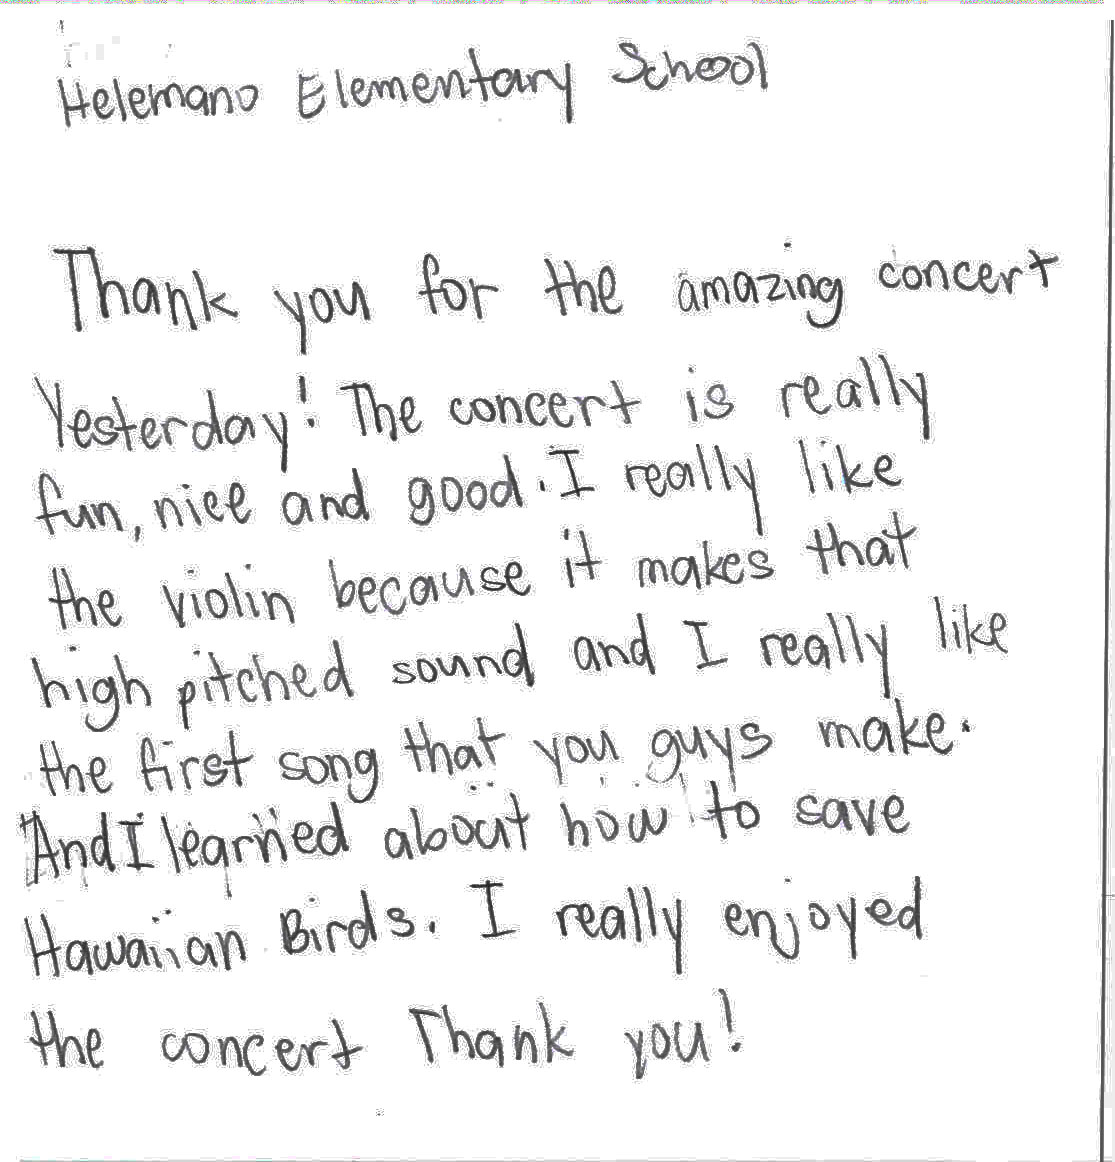 Helemano Elementary School
Thank you for the amazing concert
Yesterday! The concert is really
fun, nice and good. I really like
the violin because it makes that
high pitched sound and I really like
the first song that you guys make.
And I learned about how to save
Hawaiian Birds. I really enjoyed
the concert Thank you!